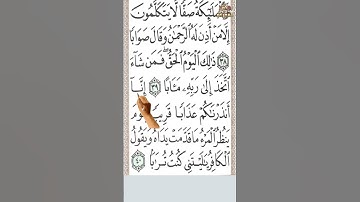 وَٱلْمَلَٰٓئِكَةُ صَفًّا لَّا يَتَكَلَّمُونَ
إِلَّا مَنْ أَذِنَ لَهُ ٱلرَّحْمَٰنُ وَقَالَ صَوَابًا
٣٨ ذَٰلِكَ ٱلْيَوْمُ ٱلْحَقُّ فَمَن شَآءَ
ٱتَّخَذَ إِلَىٰ رَبِّهِۦ مَـَٔابًا ٣٩ إِنَّآ
أَنذَرْنَٰكُمْ عَذَابًا قَرِيبًا يَوْمَ
يَنظُرُ ٱلْمَرْءُ مَا قَدَّمَتْ يَدَاهُ وَيَقُولُ
ٱلْكَافِرُ يَٰلَيْتَنِى كُنتُ تُرَٰبًۢا ٤٠